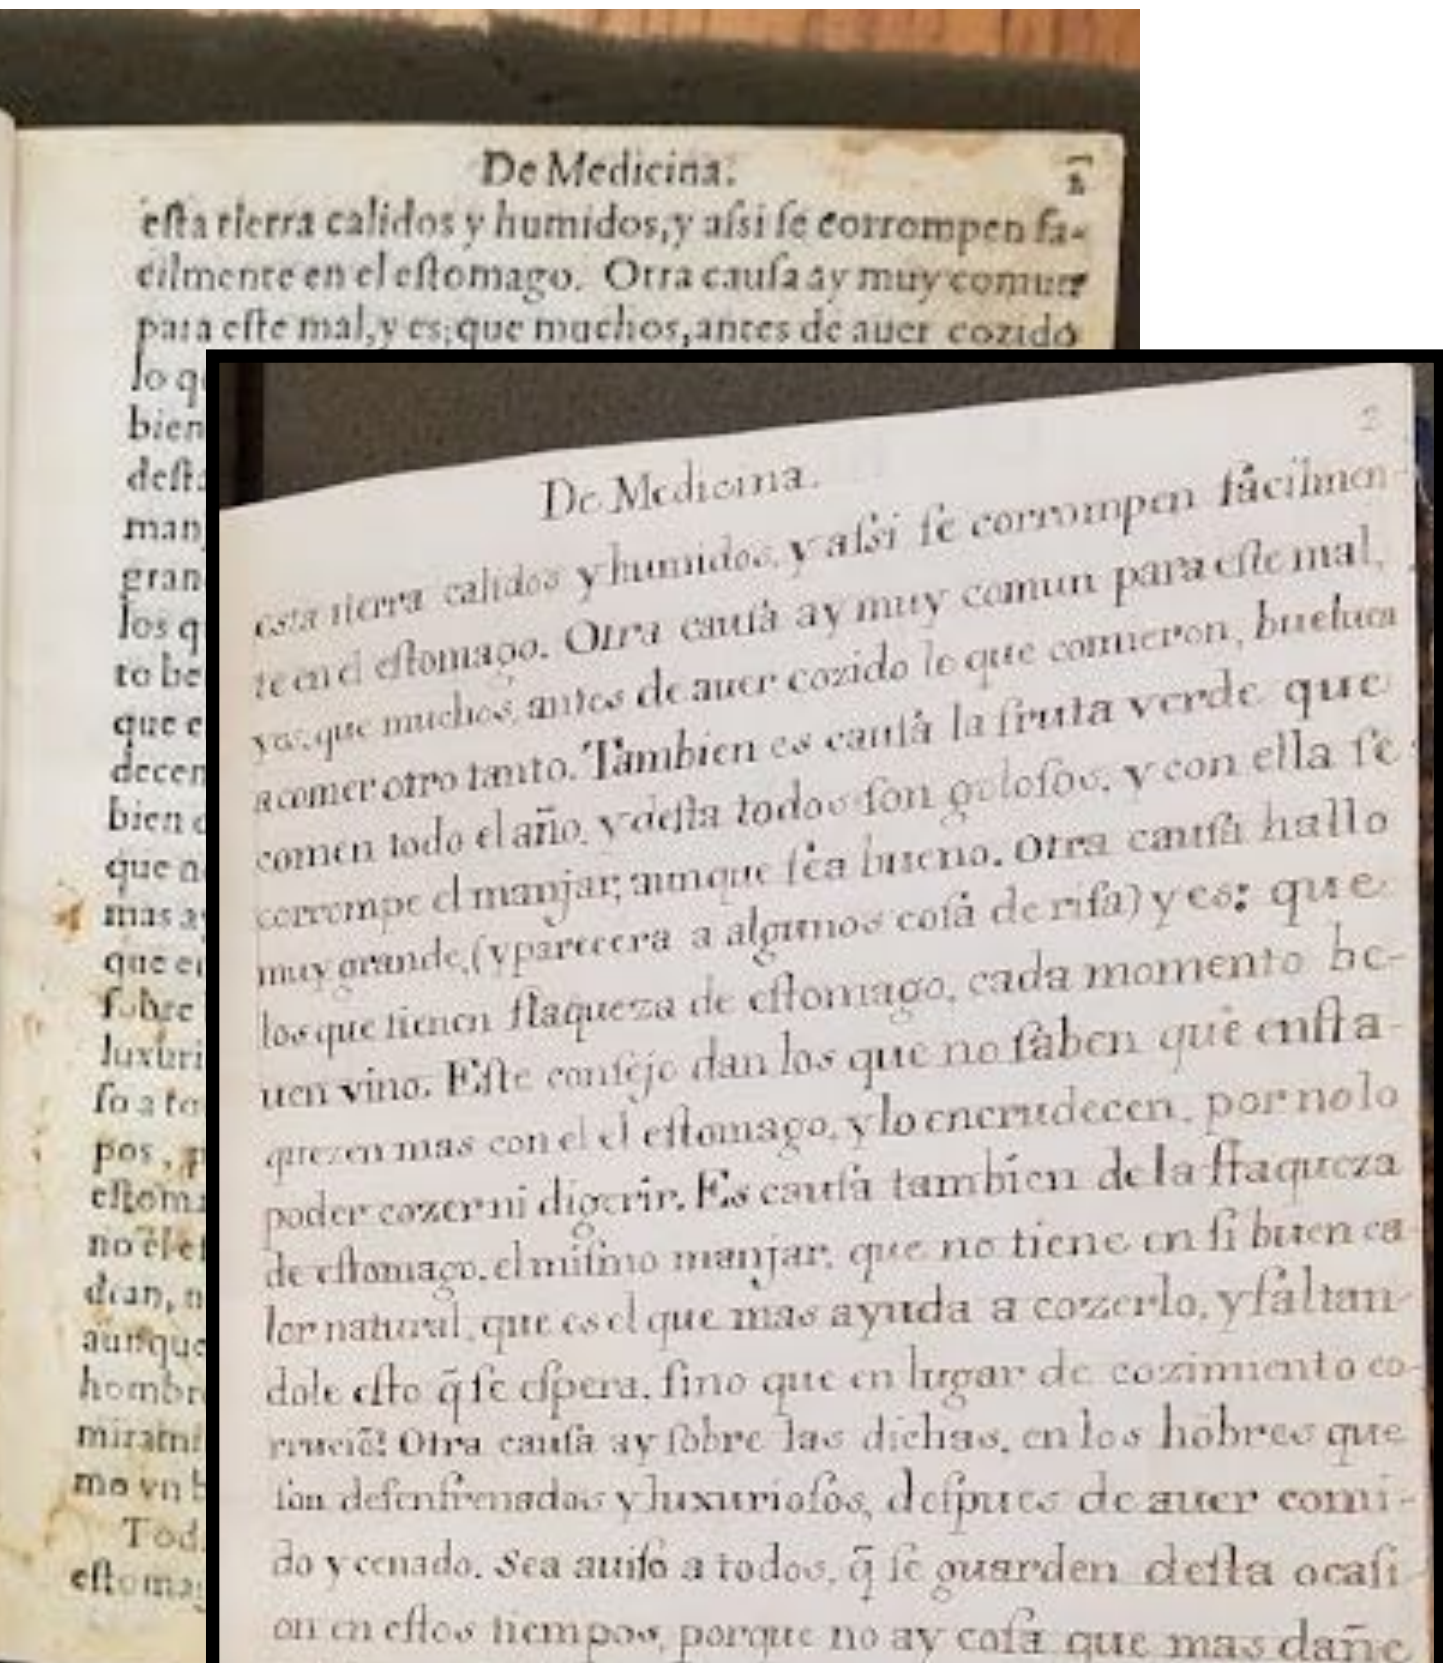 De Medicina.
2
eſta tierra calidos y humidos, y aſsi ſe corrompen fa-
cilmente en el eſtomago. Otra cauſa ay muy comun
para eſte mal, y es; que muchos, antes de auer cozido
lo q
bien
deſta
man
gran
los q
to be
que e
decen
bien
que n
mas a
que en
ſobre
luxuri
ſo a to
pos, p
eſtoma
no el eſ
dran, n
aunque
hombre
mo vn b
Tod
eſtomag
De Medicina.
2
esta tierra calidos y humidos, y aſsi ſe corrompen fácilmen-
te en el eſtomago. Otra cauſa ay muy comun para eſte mal,
y es: que muchos, antes de auer cozido lo que comieron, bueluen
a comer otro tanto. Tambien es cauſa la fruta verde que
comen todo el año, y deſta todos ſon goloſos, y con ella ſe
corrompe el manjar, aunque ſea bueno. Otra cauſa hallo
muy grande, (y parecera a algunos coſa de riſa) y es: que
los que tienen flaqueza de eſtomago, cada momento be-
uen vino. Eſte conſejo dan los que no ſaben que enfla-
quezen mas con el el eſtomago, y lo encrudecen, por no lo
poder cozer ni digerir. Es cauſa tambien de la flaqueza
de eſtomago, el miſmo manjar, que no tiene en ſi buen ca
lor natural, que es el que mas ayuda a cozerlo, y faltan-
dole eſto q̃ ſe eſpera, ſino que en lugar de cozimiento co-
rrució? Otra cauſa ay ſobre las dichas, en los hõbres que
ſon deſenfrenados y luxurioſos, deſpues de auer comi-
do y cenado. Sea auiſo a todos, q̃ ſe guarden deſta ocaſi-
on en eſtos tiempos, porque no ay coſa que mas dañe